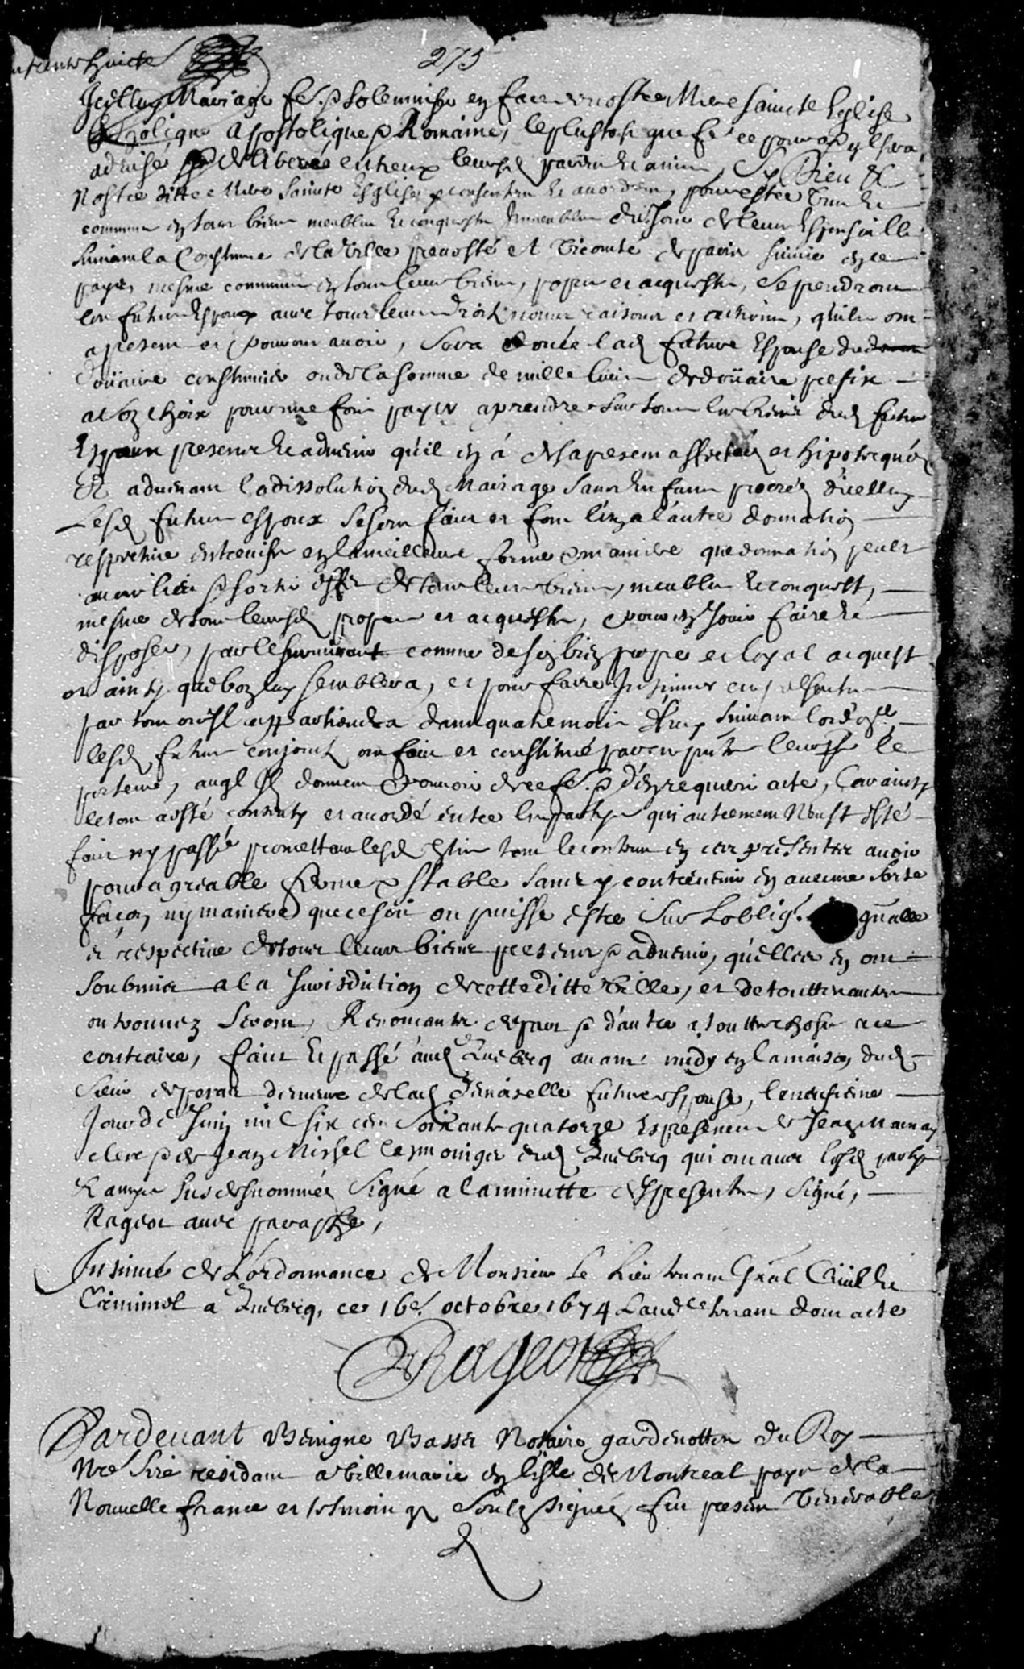 275
Icelluy Mariage fe. & solemniser en face de nostre Mere saincte Eglise
Catholique Apostolique & Romaine, le plustost que fe. ce pourra & y sera
advisé & deliberé entreux leursd. parens et amis, Sy Dieu et
Nostre ditte Mere Saincte Eglise y consentent et accordent, pour estre uns et
communs en tous biens meubles et conquests immeubles du jour de leurs Espousailles
suivant la Coustume de la Ville prevosté et Vicomté de paris suivie en ce
pays, mesme communs en tous leurs biens, propres et acquests, Se prendront
les futurs Espoux avec tous leurs droits noms raisons et actions, qu'ils ont
a present et pouront avoir, Sera douée lad. future Espouse du
doüaire coustumier ou de la somme de mille livres de doüaire prefix
a son choix pour une fois payer a prendre sur tous les biens dud. futur
Espoux presens et advenir qu'il en a des a present affectés et hipotequés
Et advenant la dissolution dud. Mariage sans enfans procréés d'icelluy
Lesd. futurs espoux se sont faict et font l'un a l'autre donnation
respective entrevifs en la meilleure forme & maniere que donnation peult
avoir lieu & sortir effet de tous leurs biens, meubles et conquests,
mesme de tous leursd. propres et acquests, pour en jouir faire et
disposer, par le survivant comme de son bien propre et loyal acquest
et ainsy que bon luy semblera, et pour faire insinuer ces presentes
par tout ou il appartiendra dans quatre mois suivant l'ordonce.
lesd. futurs conjoints ont faict et constitué par ces presentes leur pr. le
porteur, auql. ilz donnent pouvoir de ce fe. & d'en requerir acte, Car ainsy
le tout a esté consenty et accordé entre les partyes qui autrement N'eust esté
faict ny passé promettant lesd. estim tout le contenu en ces presentes avoir
pour agreable ferme & stable sans y contrevenir en aucune sorte
façon ny maniere que ce soit ou puisse estre Sur L'oblig. gnalle
et respective de tous leurs biens presens & advenir, qu'elles en ont
soubmis a la Jurisdiction de cette ditte ville, et de touttes autres
ou trouvez seront, Renonceant de part & d'autre a touttes choses a ce
contraire, faict et passé aud. Quebecq avant midy en la maison dud.
Sieur de poran demeure de lad. demoiselle future espouse, le neufiesme
Jour de Juin mil six cens soixante quatorze es presence de Jean
clerc & de Jean Michel dud. Quebecq qui ont avec lesd. partyes
et amys sus desnommés signé a la minutte des presentes, Signé,
Rageot avec paraphe,
Insinué de L'ordonnance de Monsieur Le Lieutenant Gnal Civil et
Criminel a Quebecq, ce 16e. octobre 1674 Laud. ce tenant dont acte
Rageot
Pardevant Benigne Basset Notaire gardenottes du Roy
Nre Sire residant a Villemarie en l'isle de Montreal pays de la
Nouvelle france et tesmoings soubz signés, fut present venerable